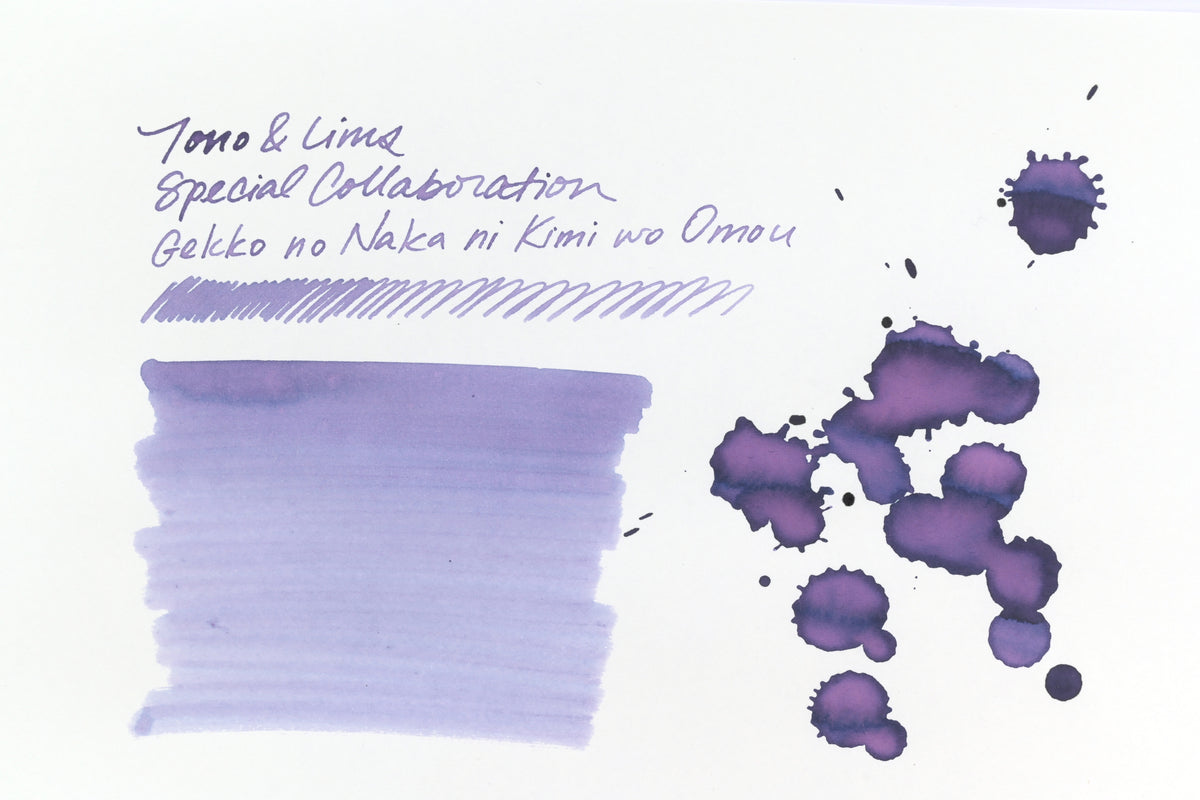 Tono & Lims
Special Collaboration
Gekko no Naka ni Kimi wo Omou